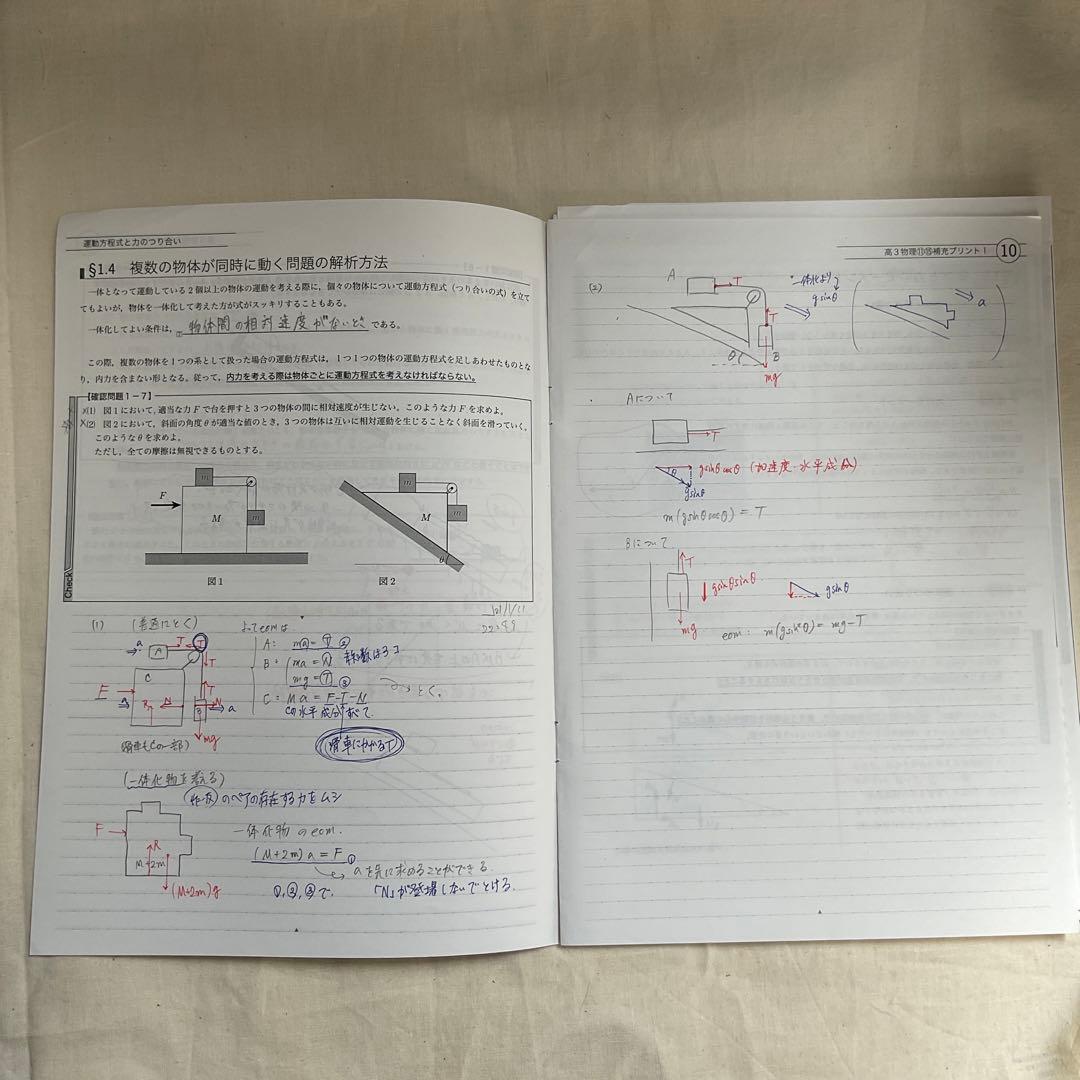 運動方程式と力のつり合い
§1.4 複数の物体が同時に動く問題の解析方法
一体となって運動している2個以上の物体の運動を考える際に，個々の物体について運動方程式（つり合いの式）を立て
てもよいが，物体を一体化して考えた方が式がスッキリすることもある。
一体化してよい条件は，物体間の相対速度がないとき である。
この際，複数の物体を1つの系として扱った場合の運動方程式は，1つ1つの物体の運動方程式を足しあわせたものとな
り，内力を含まない形となる。従って，内力を考える際は物体ごとに運動方程式を考えなければならない。
【確認問題1－7】
(1) 図1において，適当な力Fで台を押すと3つの物体の間に相対速度が生じない。このような力Fを求めよ。
(2) 図2において，斜面の角度θが適当な値のとき，3つの物体は互いに相対運動を生じることなく斜面を滑っていく。
このようなθを求めよ。
ただし，全ての摩擦は無視できるものとする。
F m M m
図1
m M m θ
図2
Check
(1) (普通にとく)
よってeomは
A: ma = T ②
B: ma = N
mg = T ③
C: Ma = F-T-N
Cの水平成分すべて
滑車にかかるT
a A T T
C T
F N T N a
B
mg
(滑車もCの一部)
(一体化物を考える)
作・反 のペアの存在する力をムシ
F R M+2m
(M+2m)g
一体化物のeom.
(M+2m)a = F ①
aを先に求めることができる.
①,②,③で,「N」が登場しないでとける.
高3物理⑪⑮補充プリント1 10
(2) A T
一体化より
gsinθ
a
T
θ B
mg
Aについて
T
θ gsinθcosθ (加速度・水平成分)
gsinθ
m(gsinθcosθ) = T
Bについて
T
gsinθsinθ
gsinθ
mg
eom: m(gsin²θ) = mg-T